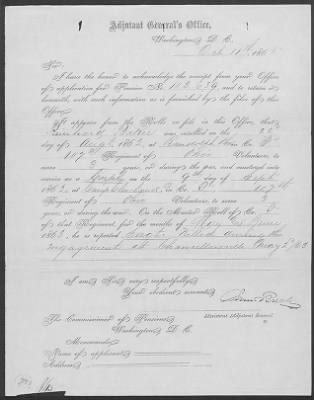 Adjutant General's Office,
Washington, D. C.
Sir:
I have the honor to acknowledge the receipt from your Office
of application for Pension No. and to return it
herewith, with such information as is furnished by the files of this
Office.
It appears from the Rolls on file in this Office, that
was enrolled on the
day of 1862, at in Co. F
107th Regiment of Ohio Volunteers, to
serve 3 years, or during the war, and mustered into
service as a on the 9th day of Sept
1862, at in Co. 107th
Regiment of Ohio Volunteers, to serve 3
years, or during the war. On the Muster Roll of Co. F
of that Regiment for the months of May & June
1863, he is reported Killed during the
engagement at Chancellorsville May 2 /63
I am, Sir, very respectfully,
Your obedient servant,
Assistant Adjutant General
The Commissioner of Pensions
Washington, D. C.
Memoranda:
Name of applicant
Address